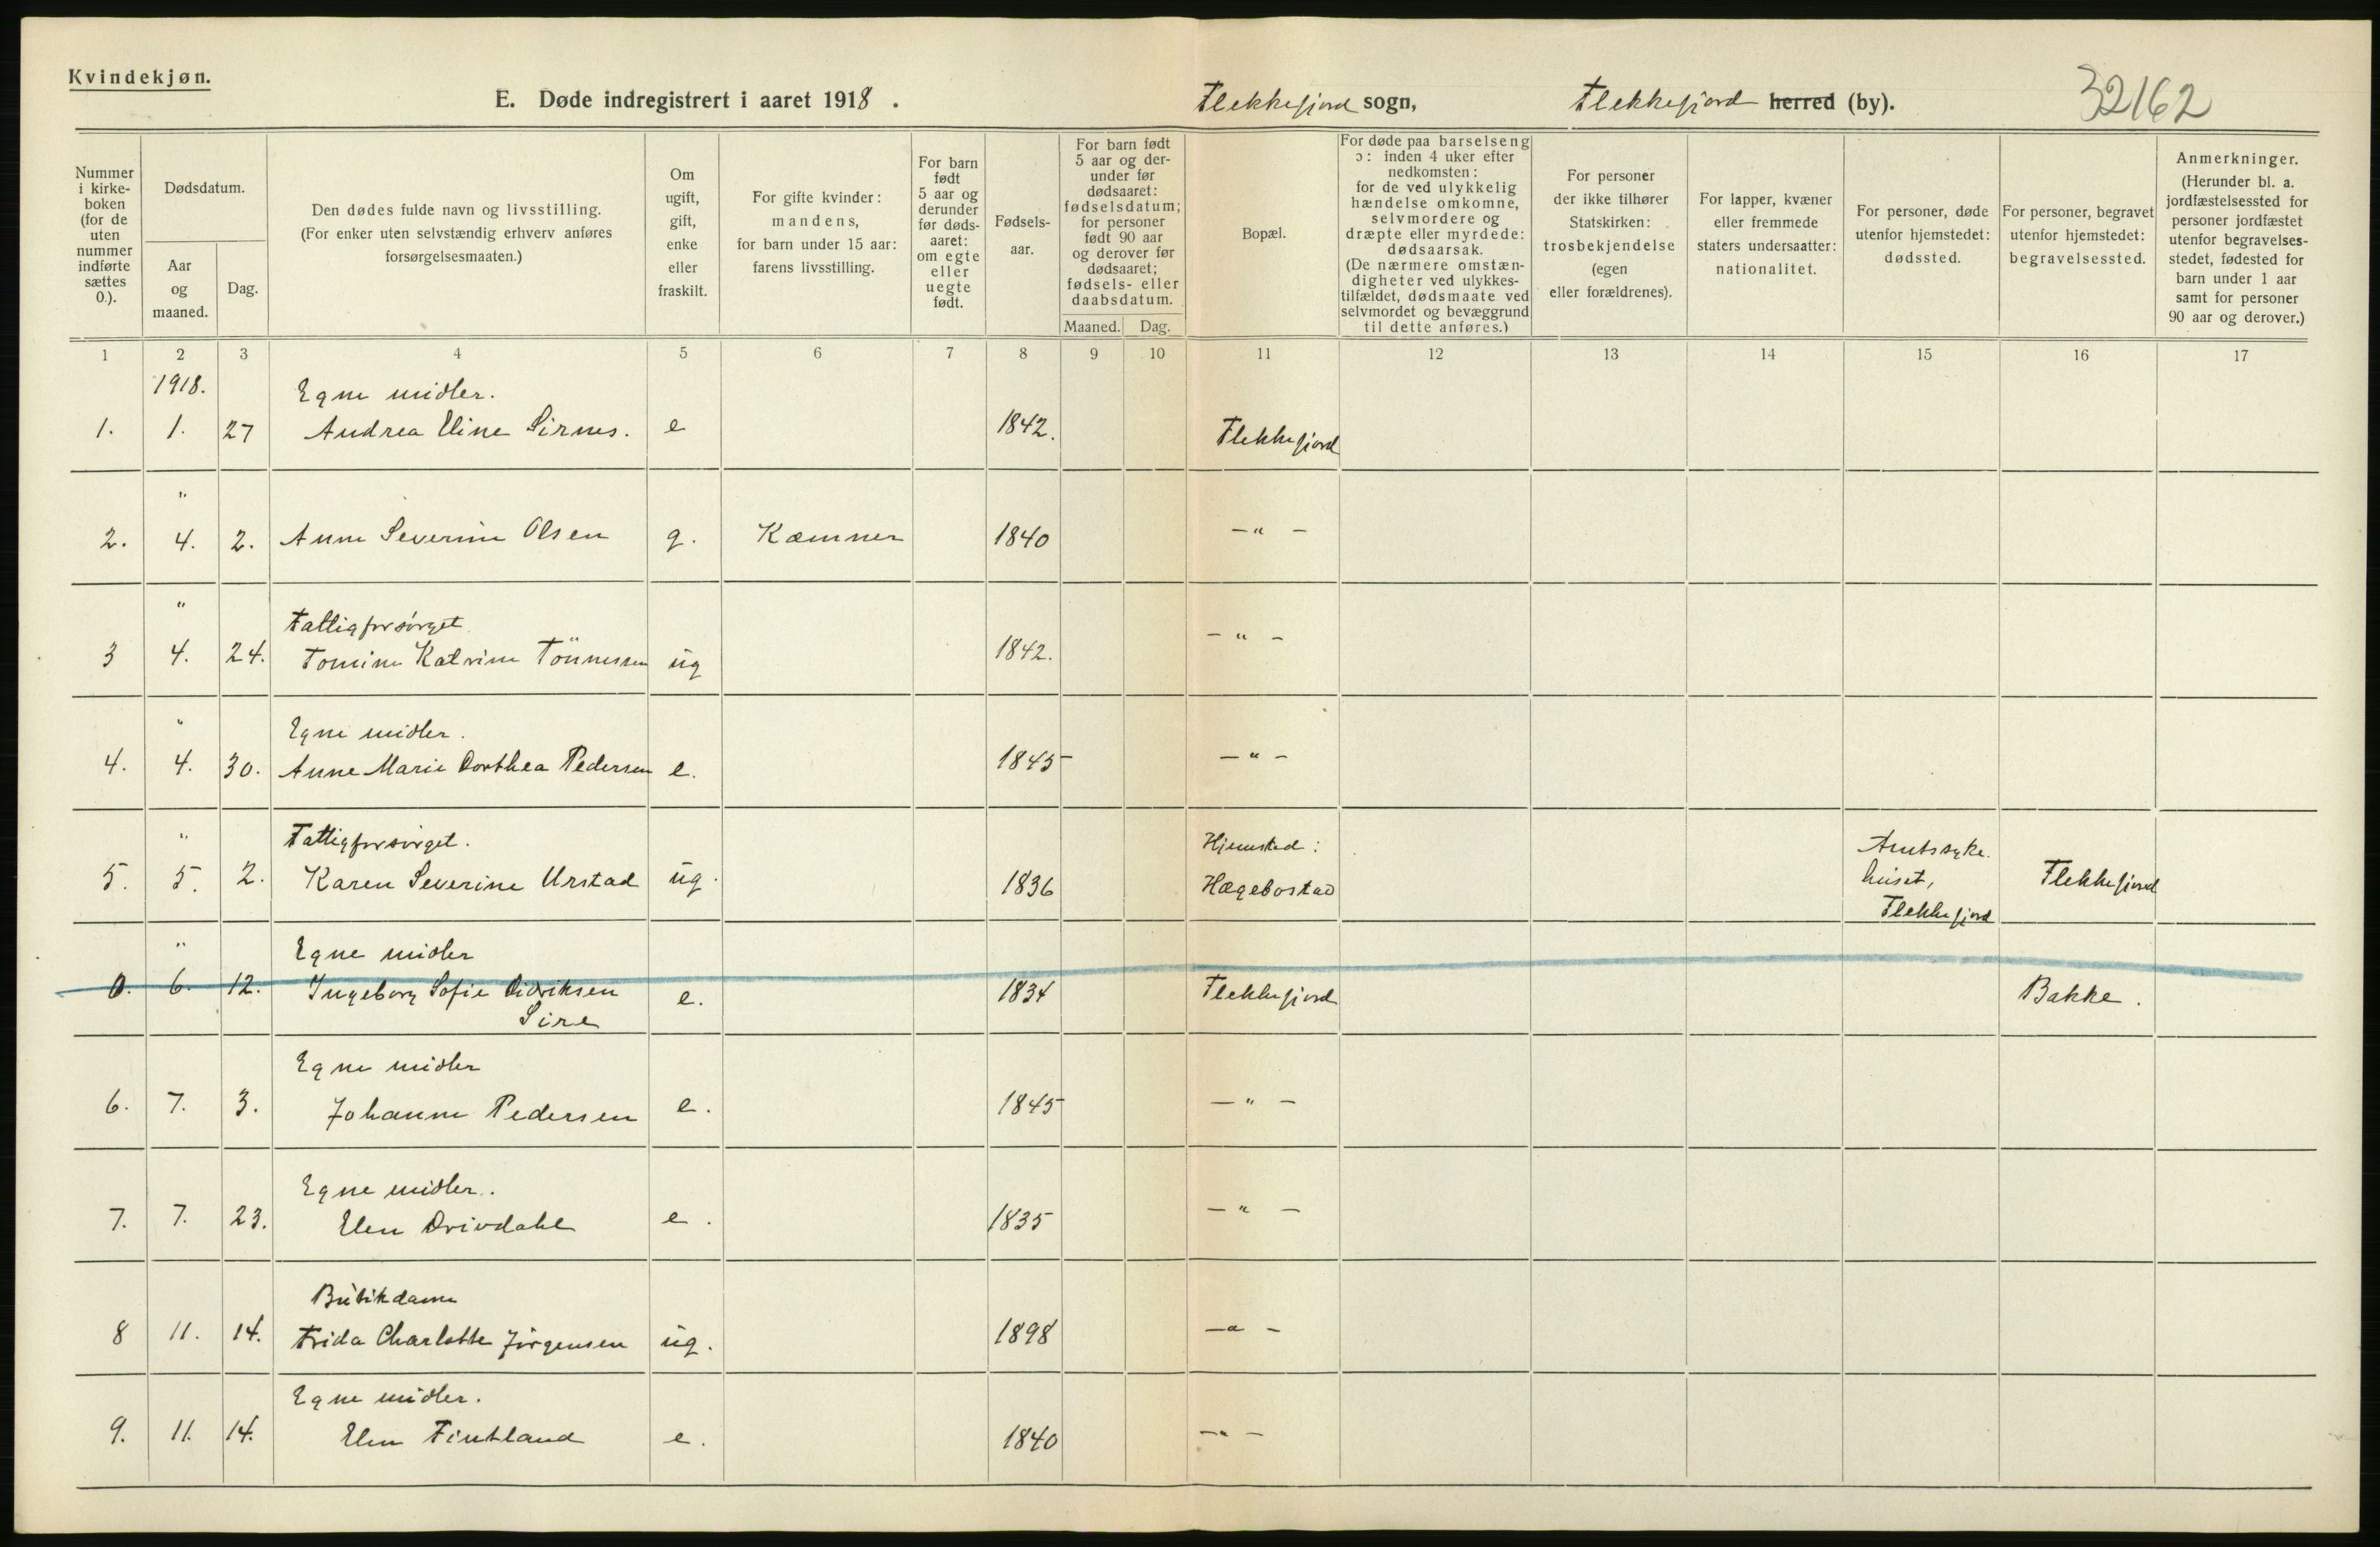 Kvindekjøn.
E. Døde indregistrert i aaret 1918.
Flekkefjord sogn,
Flekkefjord herred (by).
32162
Nummer i kirkeboken (for de uten nummer indførte sættes 0.).
Dødsdatum.
Aar og maaned.
Dag.
Den dødes fulde navn og livsstilling.
(For enker uten selvstændig erhverv anføres
forsørgelsesmaaten.)
Om ugift, gift, enke eller fraskilt.
For gifte kvinder: mandens, for barn under 15 aar: farens livsstilling.
For barn født 5 aar og derunder før dødsaaret: om egte eller uegte født.
Fødselsaar.
For barn født 5 aar og derunder før dødsaaret: fødselsdatum; for personer født 90 aar og derover før dødsaaret; fødsels- eller daabsdatum.
Maaned. Dag.
Bopæl.
For døde paa barselseng ɔ: inden 4 uker efter nedkomsten: for de ved ulykkelig hændelse omkomne, selvmordere og dræpte eller myrdede: dødsaarsak. (De nærmere omstændigheter ved ulykkestilfældet, dødsmaate ved selvmordet og bevæggrund til dette anføres.)
For personer der ikke tilhører Statskirken: trosbekjendelse (egen eller forældrenes).
For lapper, kvæner eller fremmede staters undersaatter: nationalitet.
For personer, døde utenfor hjemstedet: dødssted.
For personer, begravet utenfor hjemstedet: begravelsessted.
Anmerkninger. (Herunder bl. a. jordfæstelsessted for personer jordfæstet utenfor begravelsesstedet, fødested for barn under 1 aar samt for personer 90 aar og derover.)
1 2 3 4 5 6 7 8 9 10 11 12 13 14 15 16 17
1918. Egne midler.
1. 1. 27 Andrea Eline Sirnes. e 1842. Flekkefjord
"
2. 4. 2. Anne Severine Olsen g. Kæmner 1840 —"—
" Fattigforsörget.
3 4. 24. Tomine Katrine Tönnessen ug 1842. —"—
" Egne midler.
4. 4. 30. Anne Marie Dorthea Pedersen e. 1845 —"—
" Fattigforsörget. Hjemsted: Amtssyke-
5. 5. 2. Karen Severine Urstad ug. 1836 Hægebostad huset, Flekkefjord
Flekkefjord
" Egne midler
0. 6. 12. Ingeborg Sofie Didriksen e. 1834 Flekkefjord Bakke.
Sire
Egne midler
6. 7. 3. Johanne Pedersen e. 1845 —"—
Egne midler.
7. 7. 23. Elen Drivdahl e. 1835 —"—
Butikdame
8 11. 14. Frida Charlotte Jörgensen ug. 1898 —"—
Egne midler.
9. 11. 14. Elen Fintland e. 1840 —"—